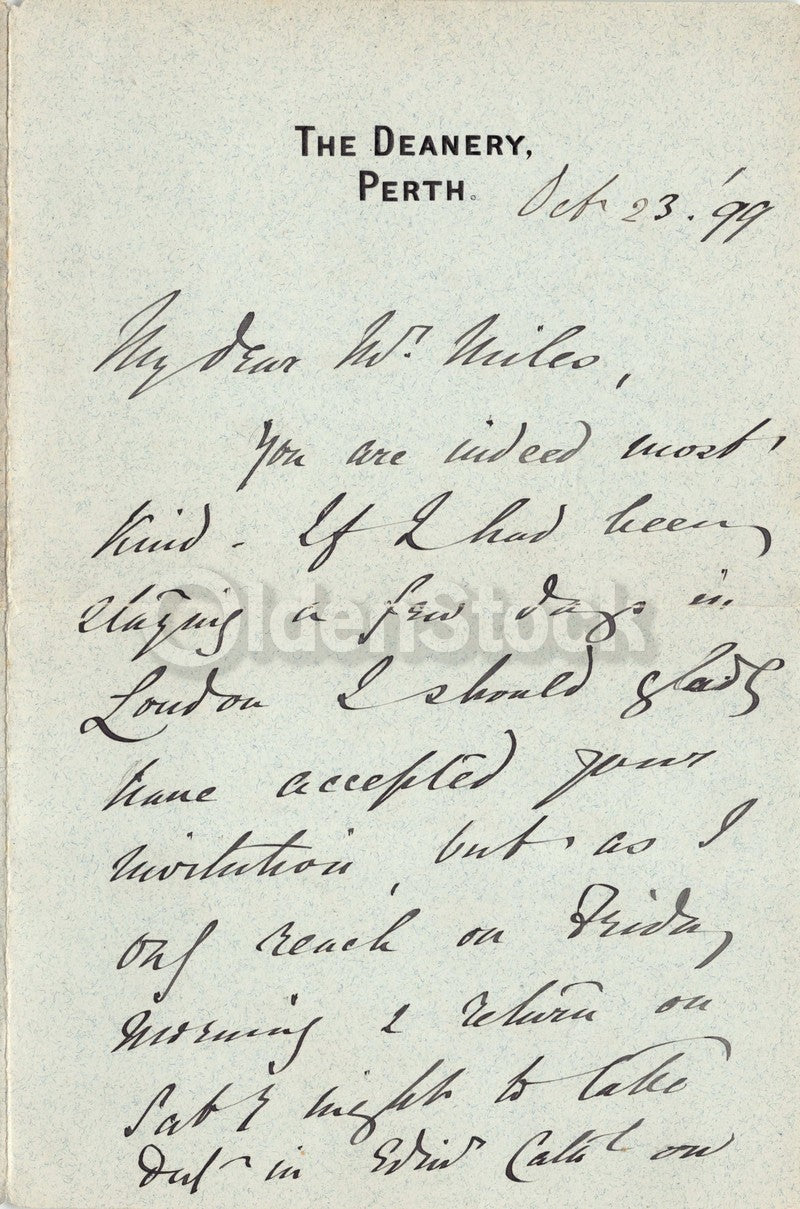 THE DEANERY,
PERTH.
Oct 23. '99
My dear Mr. Miles,
You are indeed most
kind - If I had been
staying a few days in
OldenStock
London I should gladly
have accepted your
invitation, but as I
only reach on Friday
morning & return on
Saty night to take
Duty in Edinr Cathl on